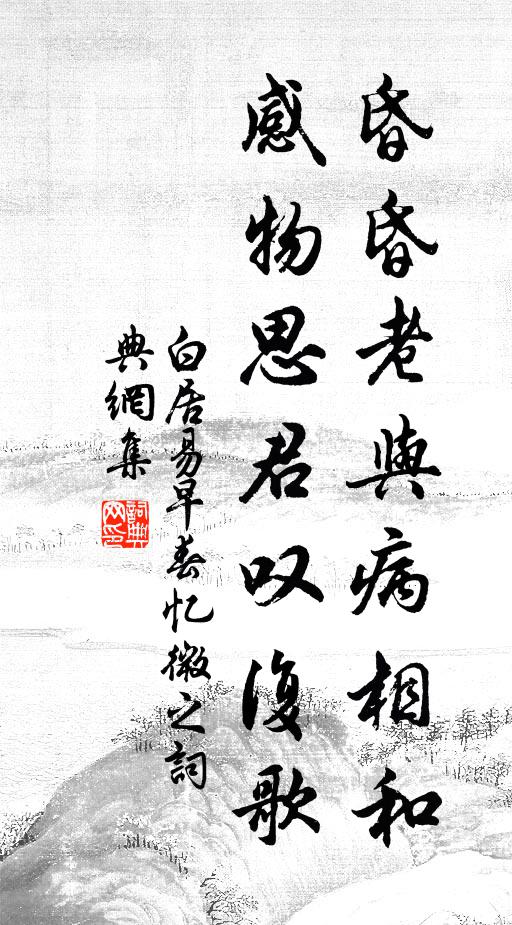 昏昏老與病相和
感物思君叹復歌
白居易早春忆微之詞
典網集
詞典网印